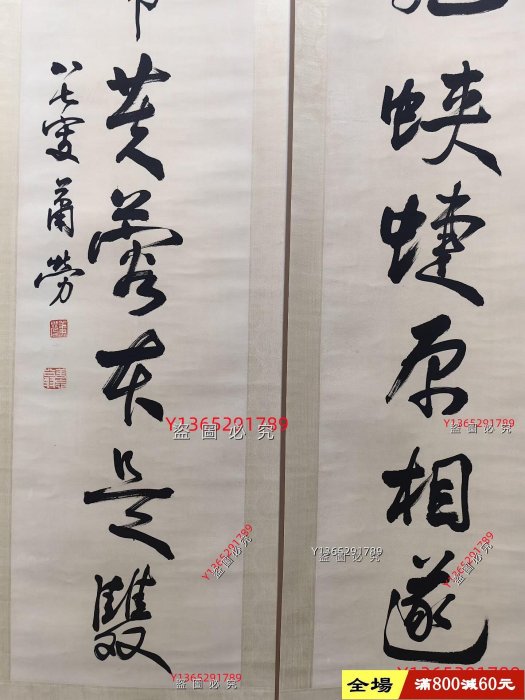 蛺蝶原相逐
芙蓉本是雙
八七叟蕭勞
Y1365291789
盜圖必究
Y1365291789
盜圖必究
Y1365291789
盜圖必究
Y1365291789
盜圖必究
Y1365291789
盜圖必究
Y1365291789
盜圖必究
Y1365291789
全場
滿800減60元